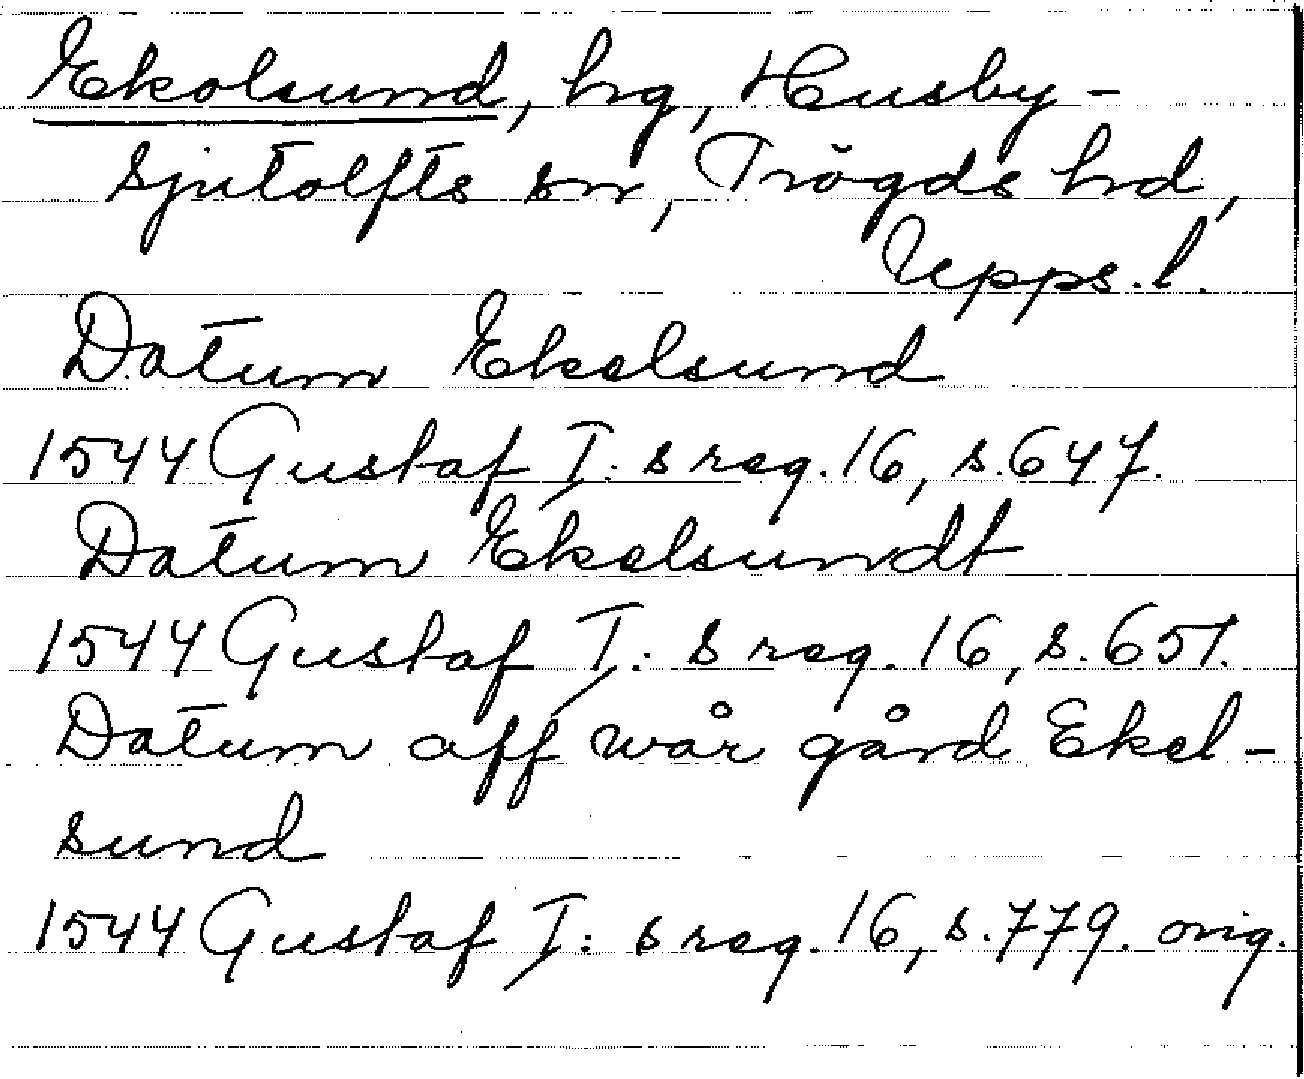 Ekolsund, hg, Husby-
sjutolfts sn, Trögds hd,
Upps. l.
Datum Ekelsund
1544 Gustaf I: s reg. 16, s. 647.
Datum Ekelsundt
1544 Gustaf I: s reg. 16, s. 651.
Datum aff wår gård Ekel-
sund
1544 Gustaf I: s reg. 16, s. 779. orig.